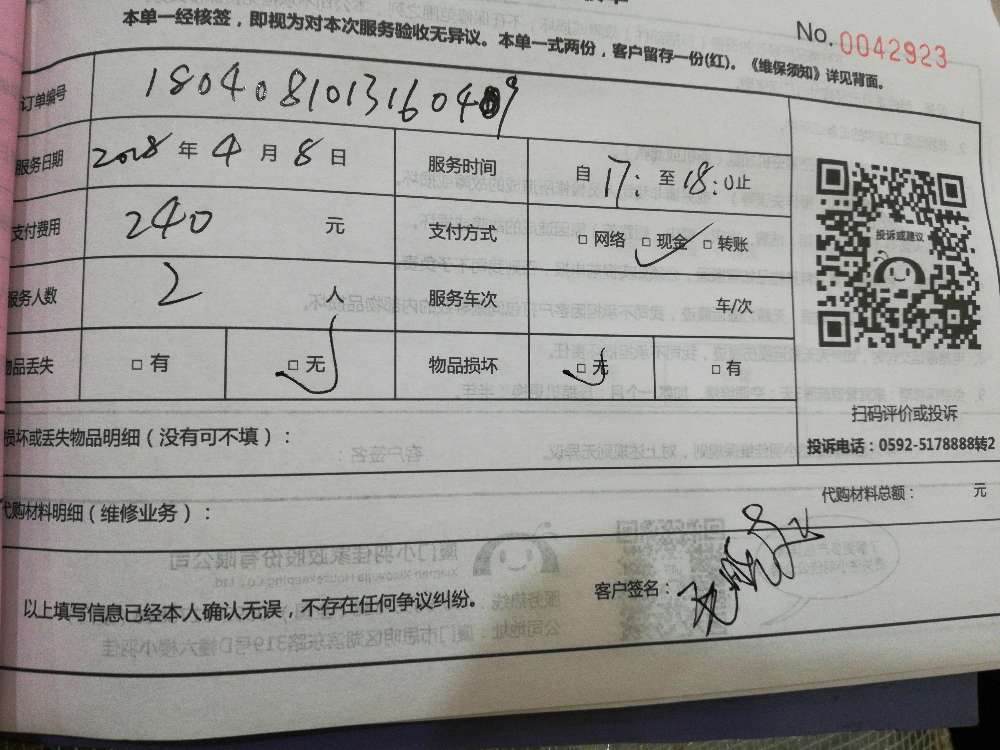 本单一经核签，即视为对本次服务验收无异议。本单一式两份，客户留存一份(红)。《维保须知》详见背面。
No. 0042923
订单编号 1804081013160409
服务日期 2018 年 4 月 8 日 服务时间 自 17: 至 18:0止
支付费用 240 元 支付方式 □ 网络 □ 现金 □ 转账
服务人数 2 人 服务车次 车/次
物品丢失 □ 有 □ 无 物品损坏 □ 无 □ 有
投诉或建议
扫码评价或投诉
投诉电话：0592-5178888转2
损坏或丢失物品明细（没有可不填）：
代购材料总额： 元
代购材料明细（维修业务）：
客户签名：
以上填写信息已经本人确认无误，不存在任何争议纠纷。